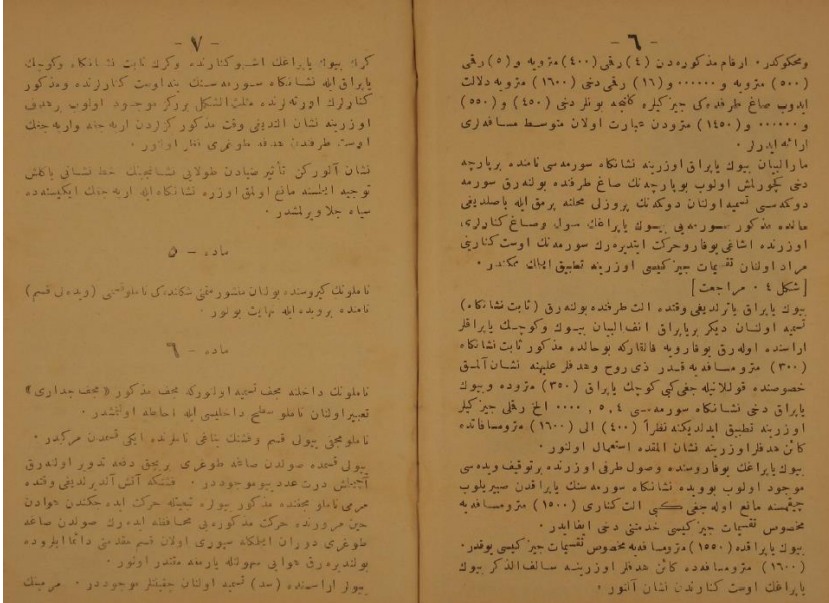 — ٦ —
ومحكوكدر . ارقام مذكوره‌دن (٤) رقمی (٤٠٠) مترویه و (٥) رقمی
(٥٠٠) مترویه و ٠٠٠٠٠٠ و (١٦) رقمی دخی (١٦٠٠) مترویه دلالت
ایدوب صاغ طرفده‌كی چیزكیلره كلنجه بونلر دخی (٤٥٠) و (٥٥٠)
و ٠٠٠٠٠٠ و (١٤٥٠) مترودن عبارت اولان متوسط مسافه‌لری
ارائه ایدرلر .
مارالبیان بیوك یاپراق اوزرینه نشانكاه سورمه‌سی نامنده برپارچه
دخی كچورلمش اولوب بوپارچه‌نك صاغ طرفنده بولنه‌رق سورمه
دوكمه‌سی تسمیه اولنان دوكمه‌نك پروزلی محلنه برمق ایله باصلدیغی
حالده مذكور سورمه‌یی بیوك یاپراغك سول وصاغ كنارلری
اوزرنده اشاغی یوقارو حركت ایتدیره‌رك سورمه‌نك اوست كنارینی
مراد اولنان تقسیمات چیزكیسی اوزرینه تطبیق ایتمك ممكندر .
[شكل ٤ ٠ مراجعت]
بیوك یاپراق یاتیرلدیغی وقتده الت طرفنده بولنه‌رق (ثابت نشانكاه)
تسمیه اولنان دیكر بریاپراق انف‌البیان بیوك وكوچك یاپراقلر
اراسنده اوله‌رق یوقارویه قالقاركه بوحالده مذكور ثابت نشانكاه
(٣٠٠) مترومسافه‌یه قدر ذی روح وهدفلر علیهنه نشان آلمق
خصوصنده قوللانیله‌جغی كبی كوچك یاپراق (٣٥٠) متروده وبیوك
یاپراق دخی نشانكاه سورمه‌سی ٤ , ٥ , ٠٠٠٠ الخ رقملی چیزكیلر
اوزرینه تطبیق ایدلدیكنه نظراً (٤٠٠) الی (١٦٠٠) مترومسافاتده
كائن هدفلر اوزرینه نشان المقده استعمال اولنور .
بیوك یاپراغك یوقاروسنده وصول طرفی اوزرنده برتوقیف ویده‌سی
موجود اولوب بوویده نشانكاه سورمه‌سنك یاپراقدن صیریلوب
چیقمسنه مانع اوله‌جغی كبی الت كناری (١٥٠٠) مترومسافه‌یه
مخصوص تقسیمات چیزكیسی خدمتنی دخی ایفا ایدر .
بیوك یاپراقده (١٥٥٠) مترومسافه‌یه مخصوص تقسیمات چیزكیسی یوقدر .
(١٦٠٠) مترومسافه‌ده كائن هدفلر اوزرینه سالف‌الذكر بیوك
یاپراغك اوست كنارندن نشان آلنور .
— ٧ —
كرك بیوك یاپراغك اشبو كنارنده وكرك ثابت نشانكاه وكوچك
یاپراق ایله نشانكاه سورمه‌سنك اوست كنارلرنده ومذكور
كنارلرك اورته‌لرنده مثلث‌الشكل برركز موجود اولوب برهدف
اوزرینه نشان الندیغی وقت مذكور كزلردن آرپه‌جغه وارپه‌جغك
اوست طرفندن هدفه طوغری نظر اولنور .
نشان آلنوركن تأثیر ضیادن طولایی نشانجینك خط نشانی یاكلش
توجیه ایتمسنه مانع اولمق اوزره نشانكاه ایله آرپه‌جغك ایكیسنه‌ده
سیاه جلا ویرلمشدر .
ماده — ٥
ناملونك كیروسنده بولنان منشور مثمنی شكلنده‌كی ناملو قسمی (ویده‌لی قسم)
نامنده برویده ایله نهایت بولور .
ماده — ٦
ناملونك داخلنه مجف تسمیه اولنوركه مجف مذكور «مجف جداری»
تعبیر اولنان ناملو سطح داخلیسی ایله احاطه اولنمشدر .
ناملو مجفی ییولی قسم وفشنك یتاغی ناملرنده ایكی قسمدن مركبدر .
ییولی قسمده صولدن صاغه طوغری بربچق دفعه تدویر اولنه‌رق
آچیلمش درت عدد ییو موجوددر . فشنكه آتش آلدیرلدیغی وقتده
مرمی ناملو مجفنده مذكور ییولره تبعیتله حركت ایده‌جكندن هوادن
حین مرورنده حركت مذكوره‌یی محافظه ایده‌رك صولدن صاغه
طوغری دوران ایتمكله سیوری اولان قسم مقدمنی دائما ایلروده
بولندیره‌رق هوایی سهولتله یارمغه مقتدر اولور .
ییولر اراسنده (سد) تسمیه اولنان چیقنتیلر موجوددر . مرمینك